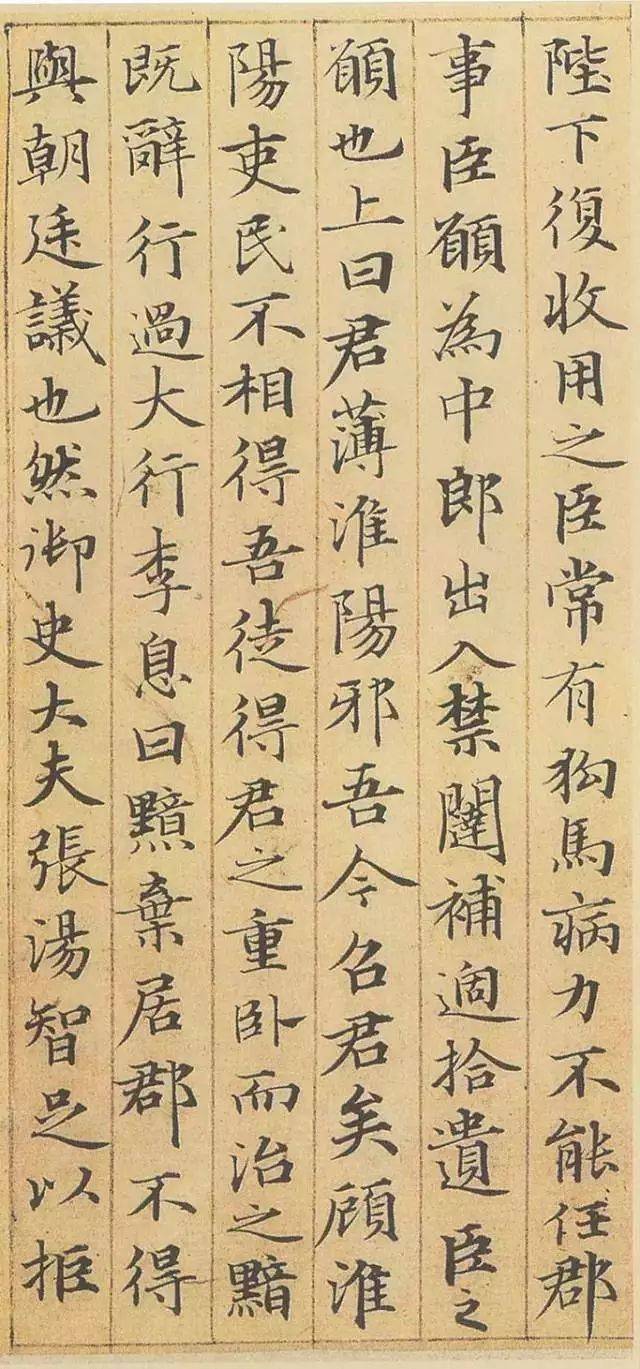 陛下復收用之臣常有狗馬病力不能任郡
事臣願為中郎出入禁闥補過拾遺臣之
願也上曰君薄淮陽邪吾今召君矣顧淮
陽吏民不相得吾徒得君之重卧而治之黯
既辭行過大行李息曰黯棄居郡不得
與朝廷議也然御史大夫張湯智足以拒